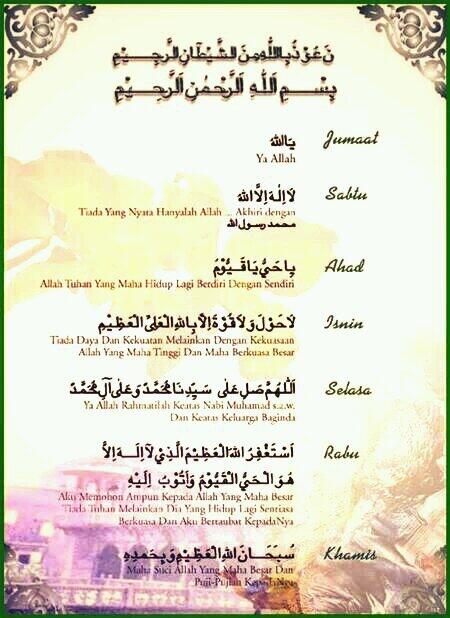 نَعُوْذُ بِاللّٰهِ مِنَ الشَّيْطَانِ الرَّجِيْمِ
بِسْمِ اللهِ الرَّحْمٰنِ الرَّحِيْمِ
يَا اللهُ Jumaat
Ya Allah
لَا اِلٰهَ اِلَّا اللهُ Sabtu
Tiada Yang Nyata Hanyalah Allah ... Akhiri dengan
محمد رسول الله
يَا حَيُّ يَا قَيُّوْمُ Ahad
Allah Tuhan Yang Maha Hidup Lagi Berdiri Dengan Sendiri
لَا حَوْلَ وَلَا قُوَّةَ اِلَّا بِاللهِ الْعَلِيِّ الْعَظِيْمِ Isnin
Tiada Daya Dan Kekuatan Melainkan Dengan Kekuasaan
Allah Yang Maha Tinggi Dan Maha Berkuasa Besar
اَللّٰهُمَّ صَلِّ عَلٰى سَيِّدِنَا مُحَمَّدٍ وَعَلٰى آلِ مُحَمَّدٍ Selasa
Ya Allah Rahmatilah Keatas Nabi Muhamad s.a.w.
Dan Keatas Keluarga Baginda
اَسْتَغْفِرُ اللهَ الْعَظِيْمَ الَّذِيْ لَا اِلٰهَ اِلَّا Rabu
هُوَ الْحَيُّ الْقَيُّوْمُ وَاَتُوْبُ اِلَيْهِ
Aku Memohon Ampun Kepada Allah Yang Maha Besar
Tiada Tuhan Melainkan Dia Yang Hidup Lagi Sentiasa
Berkuasa Dan Aku Bertaubat KepadaNya
سُبْحَانَ اللهِ الْعَظِيْمِ وَبِحَمْدِهِ Khamis
Maha Suci Allah Yang Maha Besar Dan
Puji-Pujian KepadaNya